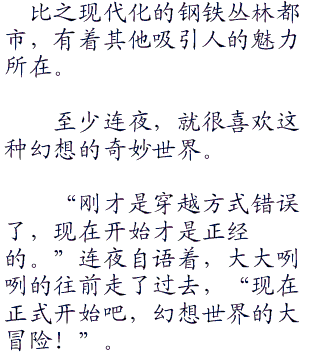 比之现代化的钢铁丛林都
市，有着其他吸引人的魅力
所在。
至少连夜，就很喜欢这
种幻想的奇妙世界。
“刚才是穿越方式错误
了，现在开始才是正经
的。”连夜自语着，大大咧
咧的往前走了过去，“现在
正式开始吧，幻想世界的大
冒险！”。